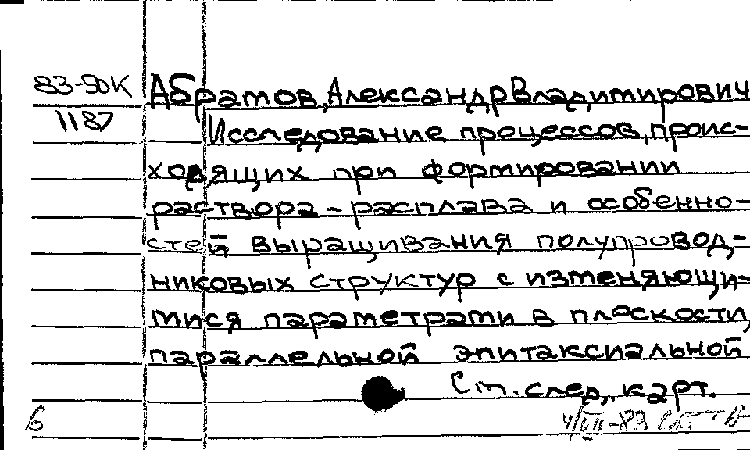 83-50К Абрамов, Александр Владимирович
1187 Исследование процессов, проис-
ходящих при формировании
раствора-расплава и особенно-
стей выращивания полупровод-
никовых структур с изменяющи-
мися параметрами в плоскости,
параллельной эпитаксиальной
См. след. карт.
6